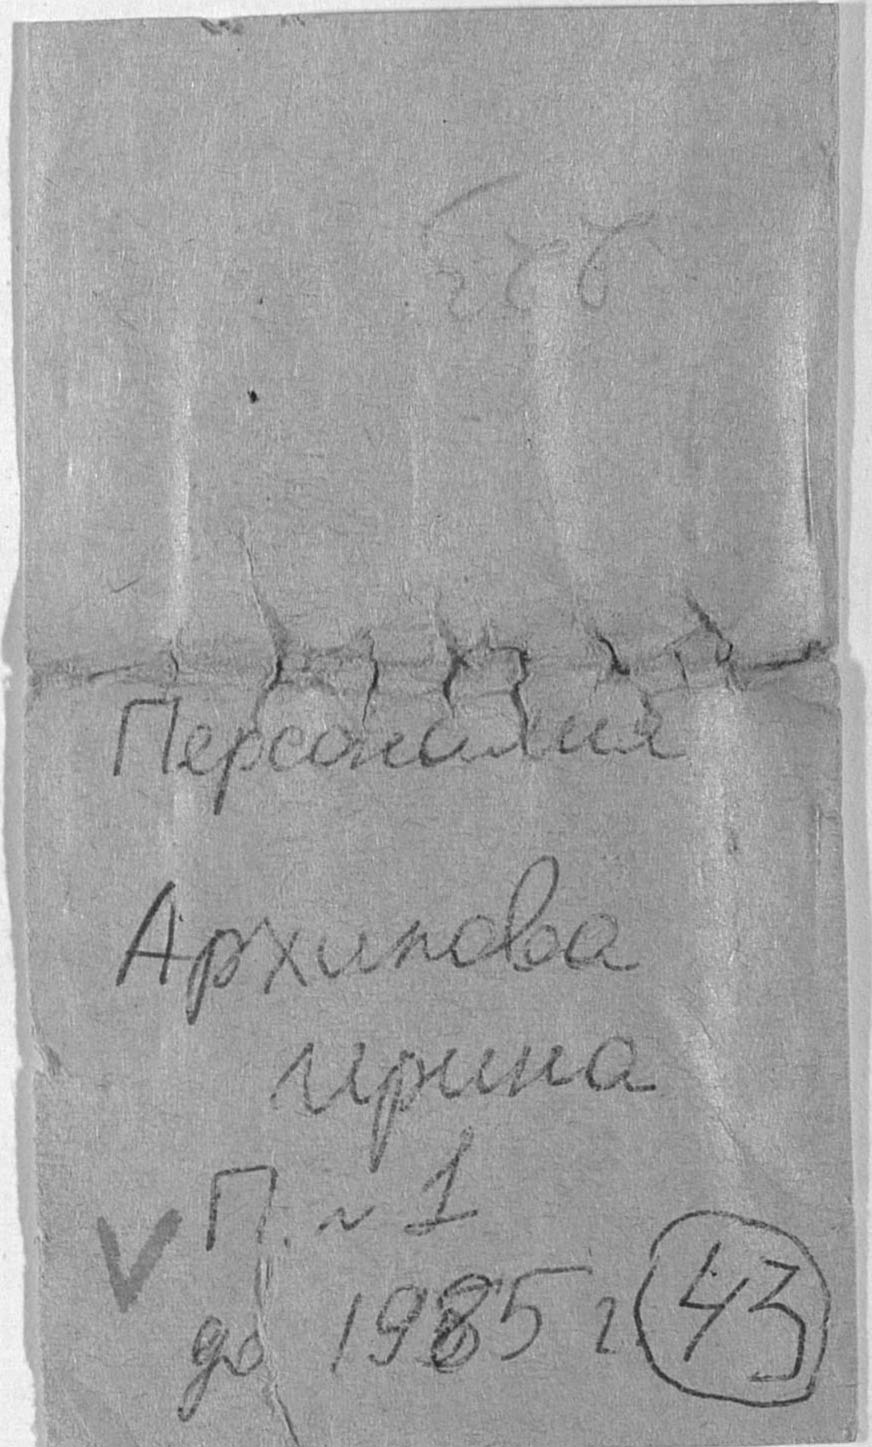 Персоналия
Архипова
Ирина
П. № 1
до 1985 г.
43